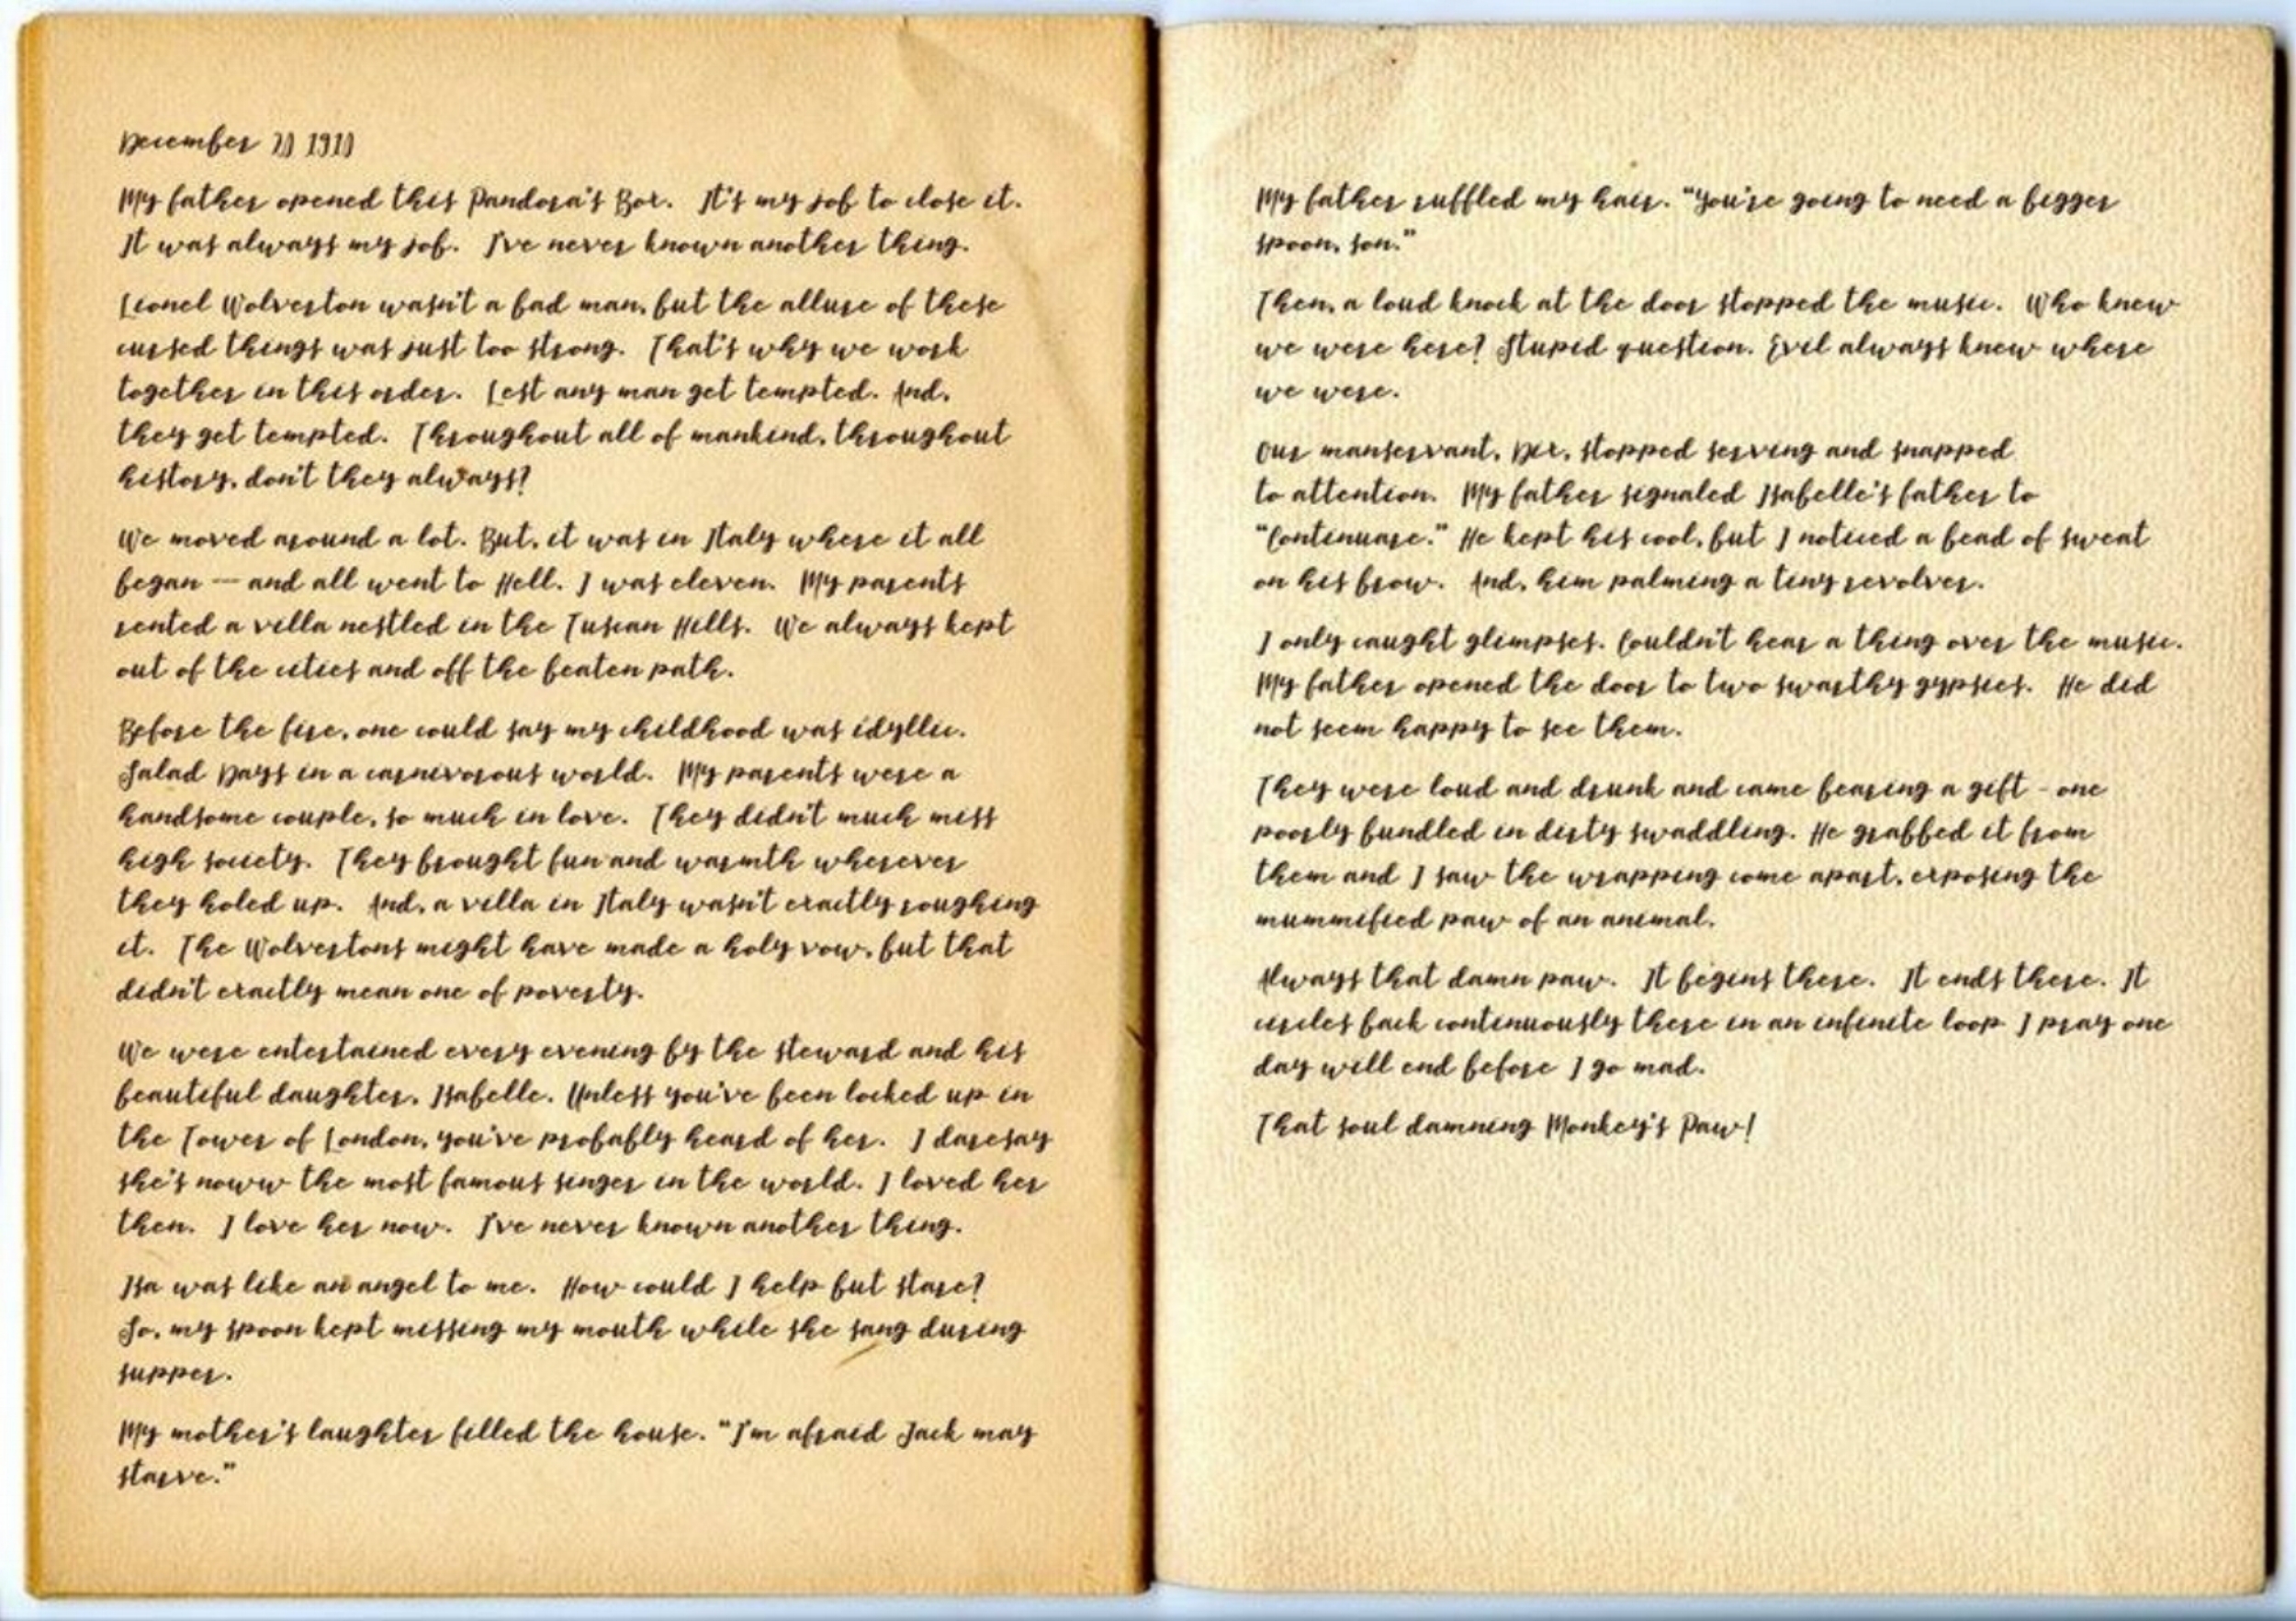 December
My father opened this Pandora's Box. It's my job to close it.
It was always my job. I've never known another thing.
Lionel Wolverton wasn't a bad man, but the allure of these
cursed things was just too strong. That's why we work
together in this order. Lest any man get tempted. And,
they get tempted. Throughout all of mankind, throughout
history, don't they always?
We moved around a lot. But, it was in Italy where it all
began — and all went to Hell. I was eleven. My parents
rented a villa nestled in the Tuscan Hills. We always kept
out of the cities and off the beaten path.
Before the fire, one could say my childhood was idyllic.
Salad Days in a carnivorous world. My parents were a
handsome couple, so much in love. They didn't much miss
high society. They brought fun and warmth wherever
they holed up. And, a villa in Italy wasn't exactly roughing
it. The Wolvertons might have made a holy vow, but that
didn't exactly mean one of poverty.
We were entertained every evening by the steward and his
beautiful daughter, Isabelle. Unless you've been locked up in
the Tower of London, you've probably heard of her. I daresay
she's noww the most famous singer in the world. I loved her
then. I love her now. I've never known another thing.
Isa was like an angel to me. How could I help but stare?
So, my spoon kept missing my mouth while she sang during
supper.
My mother's laughter filled the house. "I'm afraid Jack may
starve."
My father ruffled my hair. "You're going to need a bigger
spoon, son."
Then, a loud knock at the door stopped the music. Who knew
we were here? Stupid question. Evil always knew where
we were.
Our manservant, Dix, stopped serving and snapped
to attention. My father signaled Isabelle's father to
"Continuare." He kept his cool, but I noticed a bead of sweat
on his brow. And, him palming a tiny revolver.
I only caught glimpses. Couldn't hear a thing over the music.
My father opened the door to two swarthy gypsies. He did
not seem happy to see them.
They were loud and drunk and came bearing a gift - one
poorly bundled in dirty swaddling. He grabbed it from
them and I saw the wrapping come apart, exposing the
mummified paw of an animal.
Always that damn paw. It begins there. It ends there. It
circles back continuously there in an infinite loop I pray one
day will end before I go mad.
That soul damning Monkey's Paw!